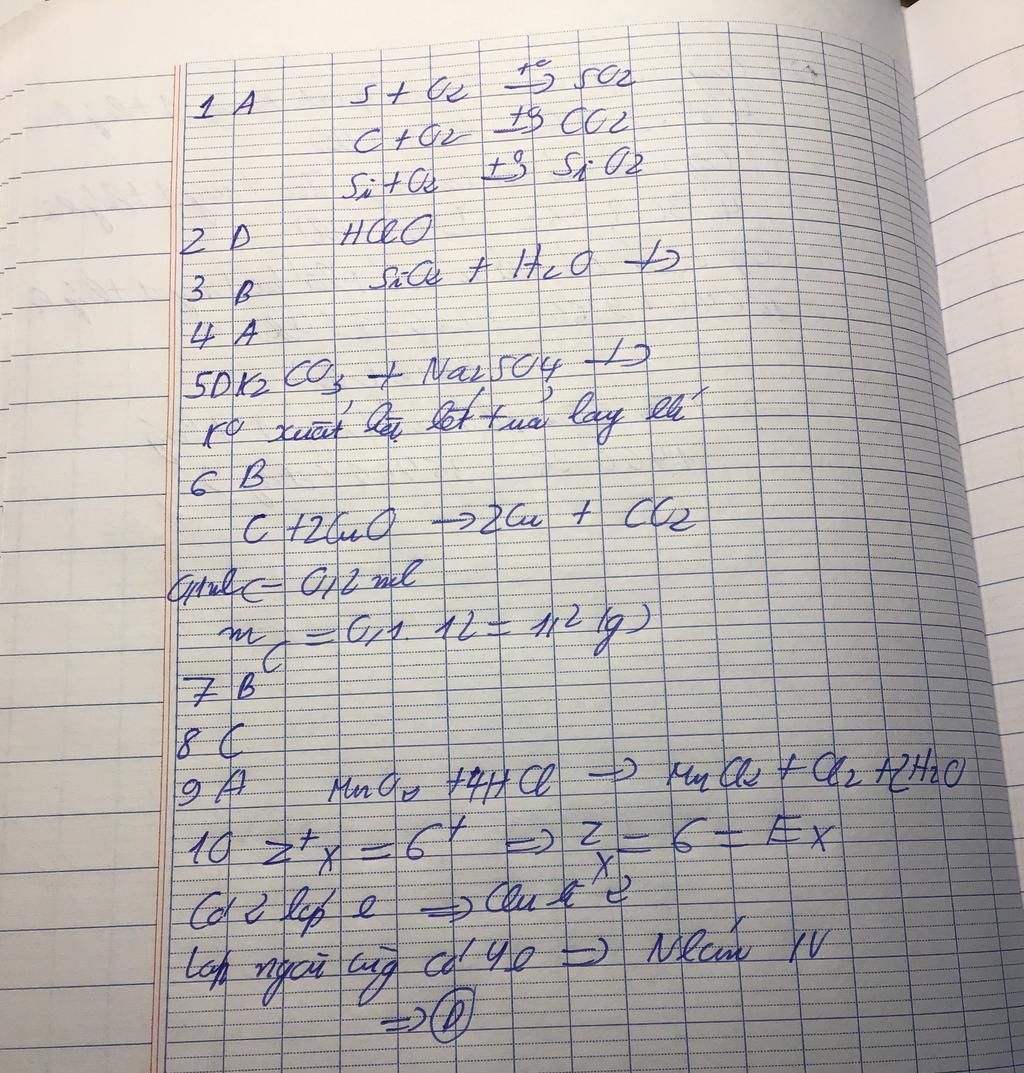 1 A S + O2 t°→ SO2
C + O2 t°→ CO2
Si + O2 t°→ SiO2
2 D HClO
3 B SiO2 + H2O ↛
4 A
5 D K2CO3 + Na2SO4 ↛
xuất kết tủa hay khí
6 B
C + 2CuO → 2Cu + CO2
0,1ml ← 0,2 ml
mC = 0,1. 12 = 1,2 (g)
7 B
8 C
9 A MnO2 + 4HCl → MnCl2 + Cl2 + 2H2O
10 Z+x = 6+ => Zx = 6 = Ex
Có 2 lớp e => Chu kì 2
Lớp ngoài cùg có 4e => Nhóm IV
=> D